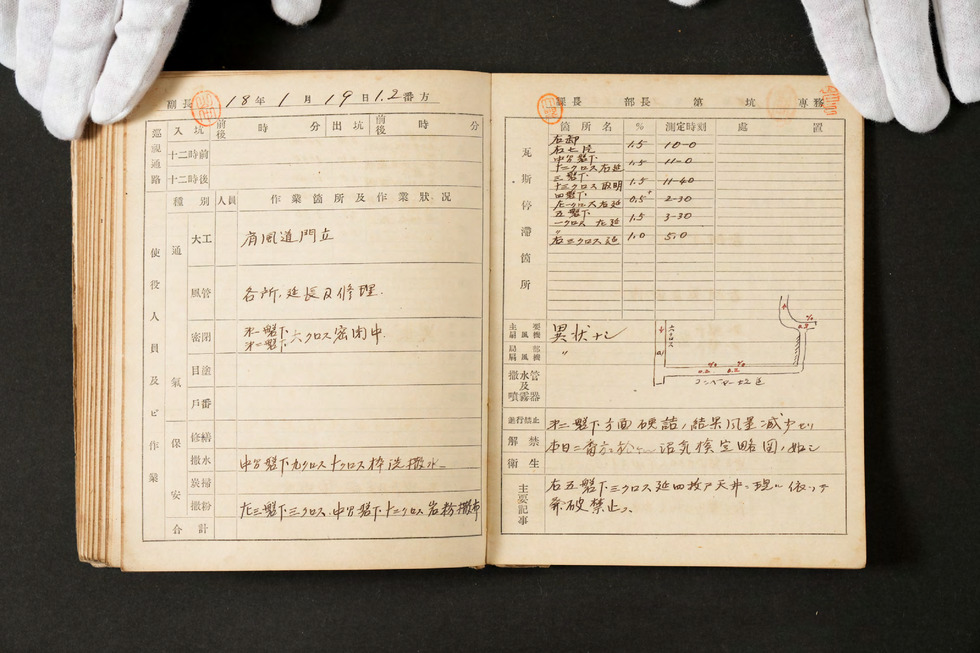 副長 18年1月19日1.2番方
巡視通路 入坑 前後 時 分 出坑 前後 時 分
十二時前
十二時後
種別 人員 作業箇所及作業狀况
使役人員及ビ作業
通氣
大工 肩風道門立
風管 各所、延長及修理.
密閉 才一盤下
才二盤下 六クロス密閉中.
目塗
戶番
保安
修繕
撒水 中分盤下九クロス十クロス棒洗撒水
炭掃
撒粉 左三盤下三クロス.中分盤下十二クロス岩粉撒布
合計
課長 部長 第 坑 専務
瓦斯停滞箇所
箇所名 % 測定時刻 處置
右卸
右七片 1.5 10-0
中分盤下
十二クロス右延 1.5 11-0
三盤下
十三クロス 1.5 11-40
四盤下
左一クロス右延 0.5 2-30
五盤下
一クロス左延 1.5 3-30
〃
右三クロス延 1.0 5.0
主要扇風機 異状ナシ
局部扇風機 〃
撒水管及噴霧器
六クロス
コンベヤー
進行禁止 才二盤下方面硬詰ノ結果風量減少セリ
解禁 本日二番方ニ於テ沼気検定略図ノ如シ
衛生
主要記事 右五盤下三クロス延四枚戸天井ニ現ル依ッテ
発破禁止ス.